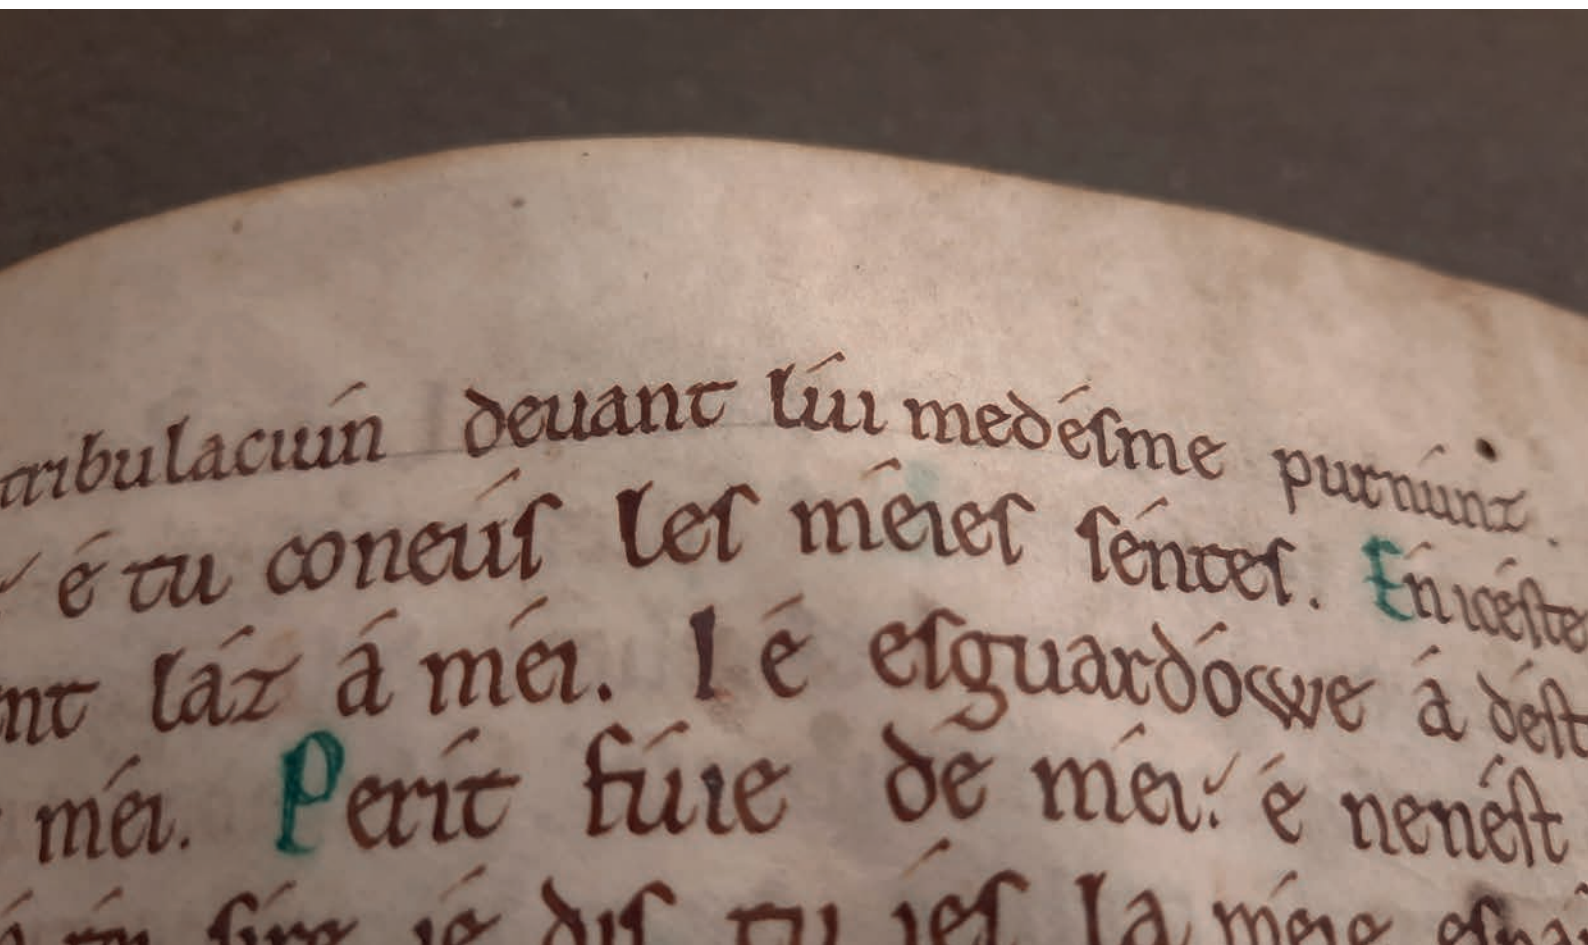 tribulaciuín deuant lúi medésme purnúnz.
é tu coneuís les méies séntes. En icéste
nt láz á méi. I é esguardówe á dést
méi. Perít fúie dé méi: é nenést
síre ié dis tu iés la méie